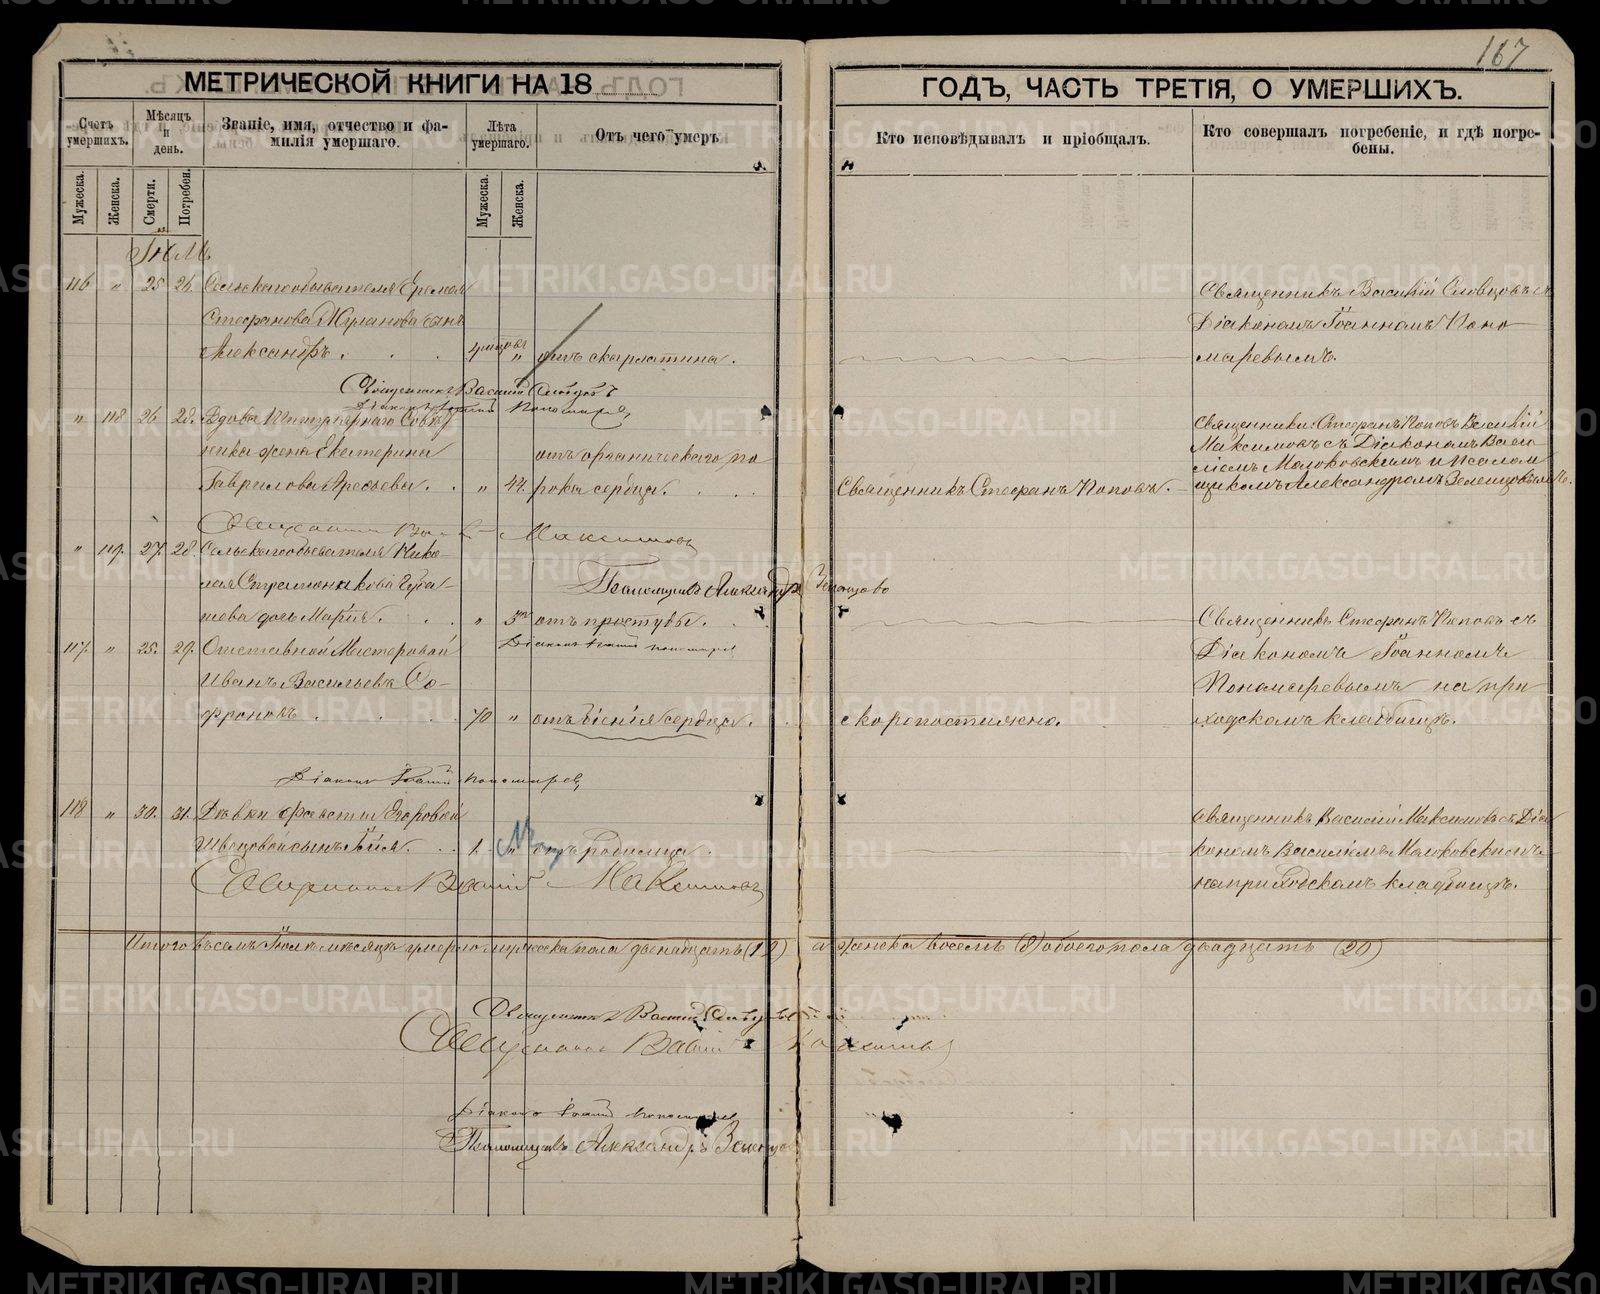 167
МЕТРИЧЕСКОЙ КНИГИ НА 18
ГОДЪ, ЧАСТЬ ТРЕТІЯ, О УМЕРШИХЪ.
Счетъ умершихъ.
Мѣсяцъ и день.
Званіе, имя, отчество и фа-
милія умершаго.
Лѣта умершаго.
Отъ чего умеръ
Кто исповѣдывалъ и пріобщалъ.
Кто совершалъ погребеніе, и гдѣ погре-
бены.
Мужеска.
Женска.
Смерти.
Погребен.
Мужеска.
Женска.
Іюль
116 " 25 26. Сельскаго обывателя Еремея
Стефанова сынъ
Александръ. 4 мѣсяцъ " отъ скарлатина.
Священникъ Василій Словцовъ съ
Діакономъ Іоанномъ Поно-
маревымъ.
Священникъ Василій Словцовъ
Діаконъ Іоаннъ Пономаревъ
" 118 26 28. Вдова
жена Екатерина
Гаврилова Аресьева. " 44. отъ органическаго по
рока сердца.
Священникъ Стефанъ Поповъ.
Священники: Стефанъ Поповъ Василій
Максимовъ съ Діакономъ Васи
ліемъ Малоховскимъ и Псалом
щикомъ Александромъ Зеленцовымъ.
Священникъ Василій Максимовъ
" 119. 27. 28. Сельскаго обывателя Нико-
лая
дочь Марія. " отъ простуды.
Псаломщикъ Александръ Зеленцовъ
Діаконъ Іоаннъ Пономаревъ
117. " 25. 29. Отставной Мастеровой
Иванъ Васильевъ Со-
фроновъ 70 " отъ біенія сердца.
скоропостижно.
Священникъ Стефанъ Поповъ съ
Діакономъ Іоанномъ
Пономаревымъ на при
ходскомъ кладбищѣ.
Діаконъ Іоаннъ Пономаревъ
118 " 30. 31. Дѣвки Егоровой
Швецовой сынъ 1. " отъ родимца.
Священникъ Василій Максимовъ съ Діа
кономъ Василіемъ Малоховскимъ
на приходскомъ кладбищѣ.
Священникъ Василій Максимовъ
Итого въ семъ Іюлѣ мѣсяцѣ умерло мужеска пола двенадцать (12) а женска восемь (8) обоего пола двадцать (20)
Священникъ Василій Словцовъ
Священникъ Василій Максимовъ
Діаконъ Іоаннъ Пономаревъ
Псаломщикъ Александръ Зеленцовъ
METRIKI.GASO-URAL.RU